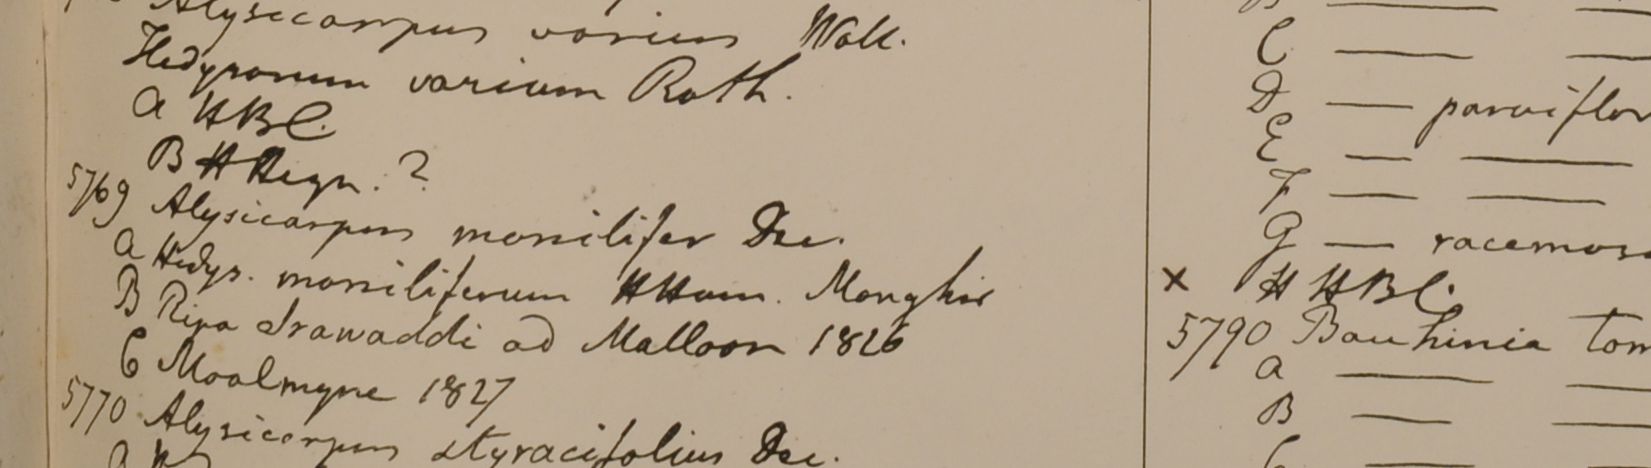 Alysicarpus varius Wall.
Hedysarum varium Roth.
a HBC.
B H Heyn. ?
5769 Alysicarpus monilifer Dec.
a Hedys. moniliferum HHam. Monghir
B Ripa Irawaddi ad Malloon 1826
C Moalmyne 1827
5770 Alysicarpus styracifolius Dec.
C
D — parviflor
E
F
G — racemos
x H HBC.
5790 Bauhinia tom
a
B